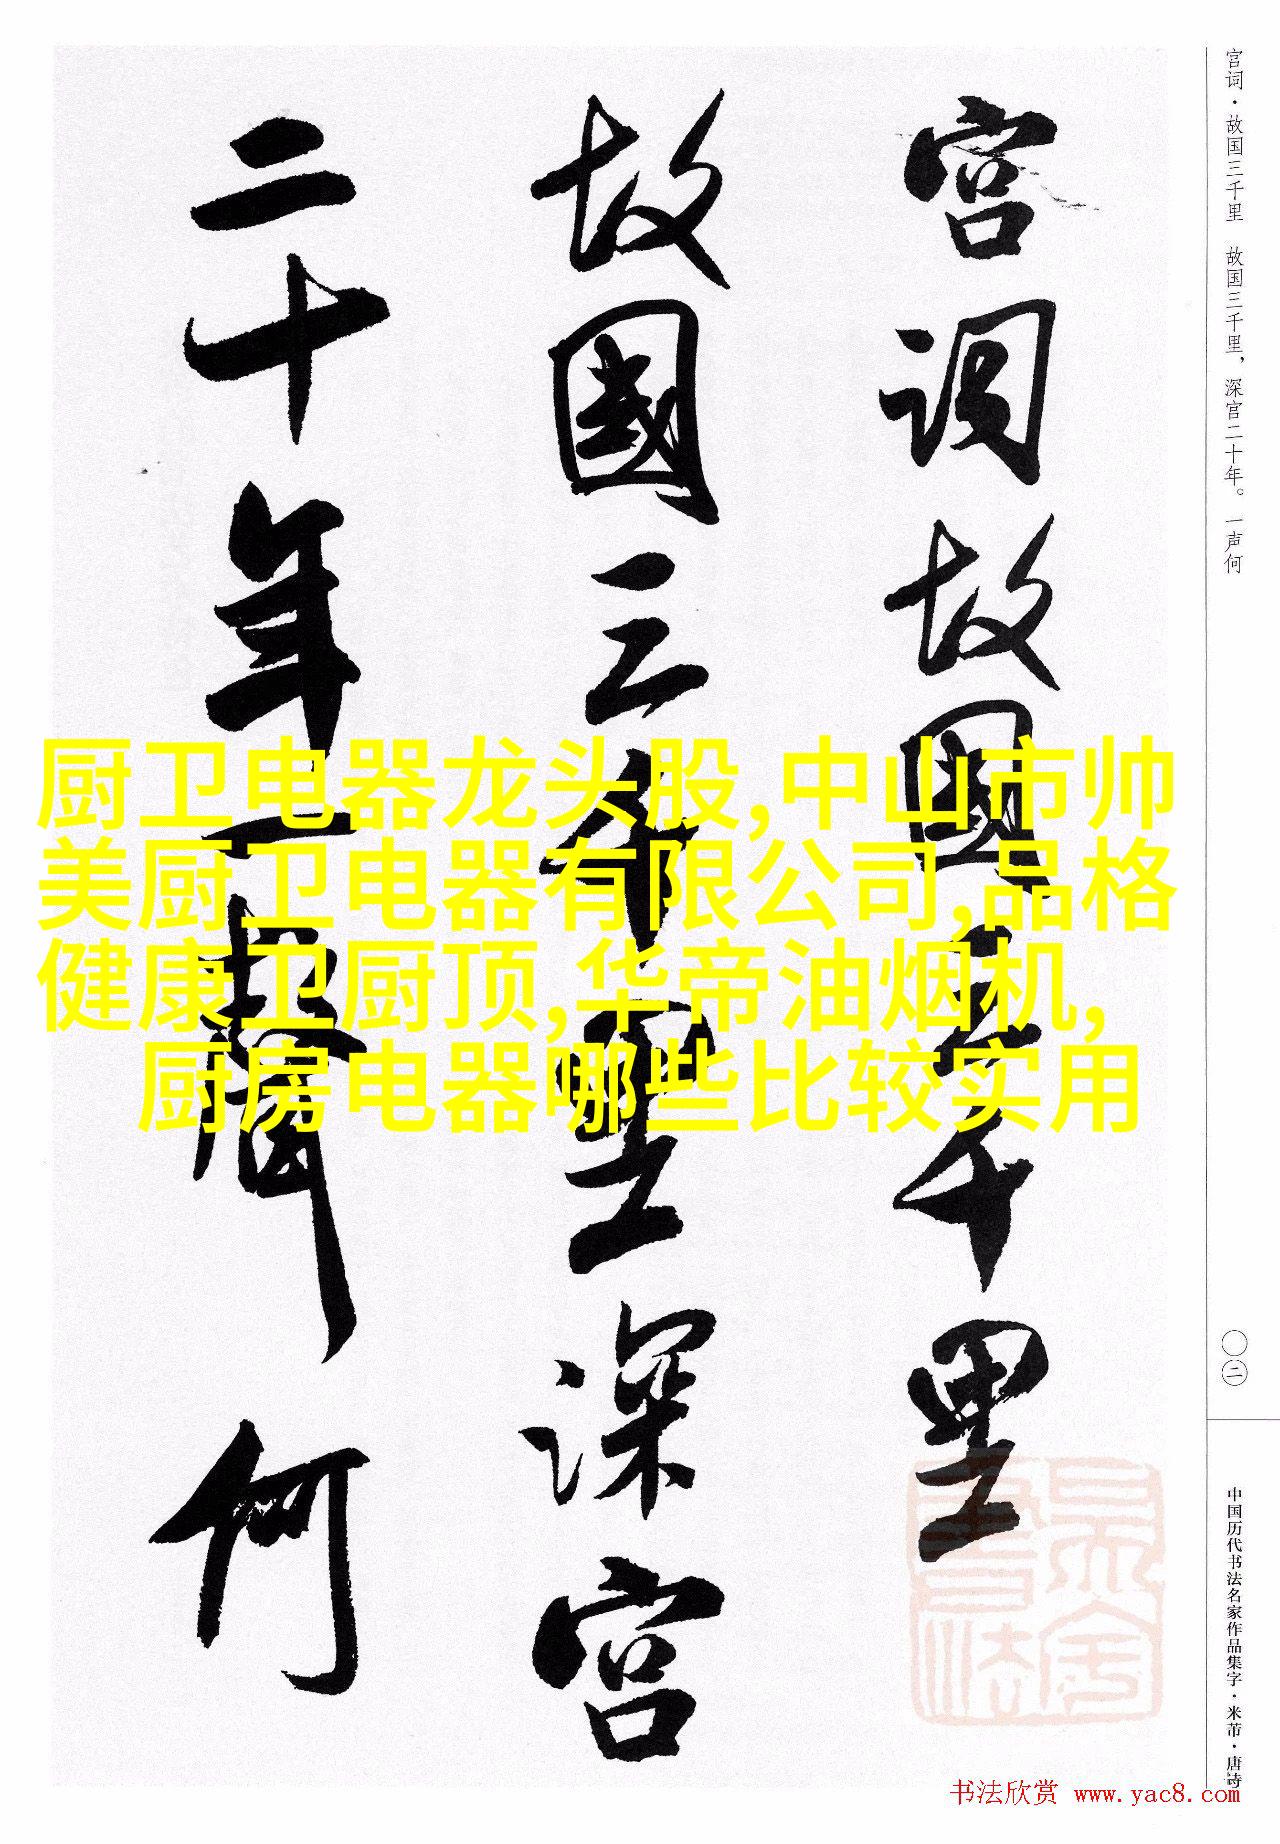 宫词·故国三千里 故国三千里，深宫二十年。一声何
宫词故國三千里
故國三千里深宫
二十年一聲何
厨卫电器龙头股,中山市帅
美厨卫电器有限公司,品格
健康卫厨顶,华帝油烟机,
厨房电器哪些比较实用
〇二
中国历代书法名家作品集字·米芾·唐诗
书法欣赏 www.yac8.com